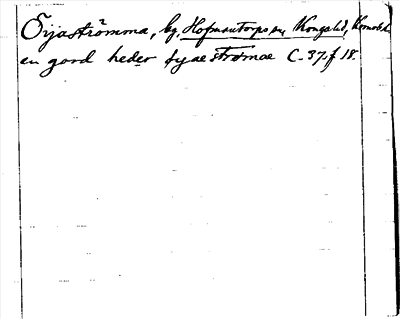 Öijaströmma, by, Hofmantorps sn, Kongab.
en gord heder øyae strømae C-37. f 18.